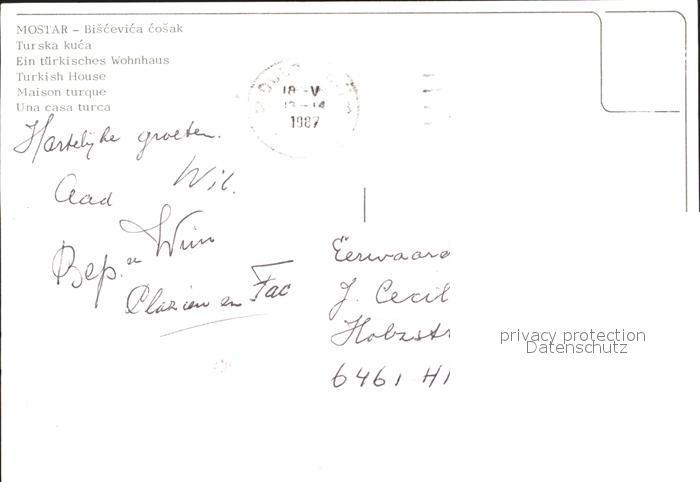 MOSTAR – Bišćevića ćošak
Turska kuća
Ein türkisches Wohnhaus
Turkish House
Maison turque
Una casa turca
18-V
1987
Hartelijke groeten.
Aad Wil.
Bep. en Wim
Plazien en Jac
Eerwaard
J. Cecil
Holzstr
6461 H
privacy protection
Datenschutz